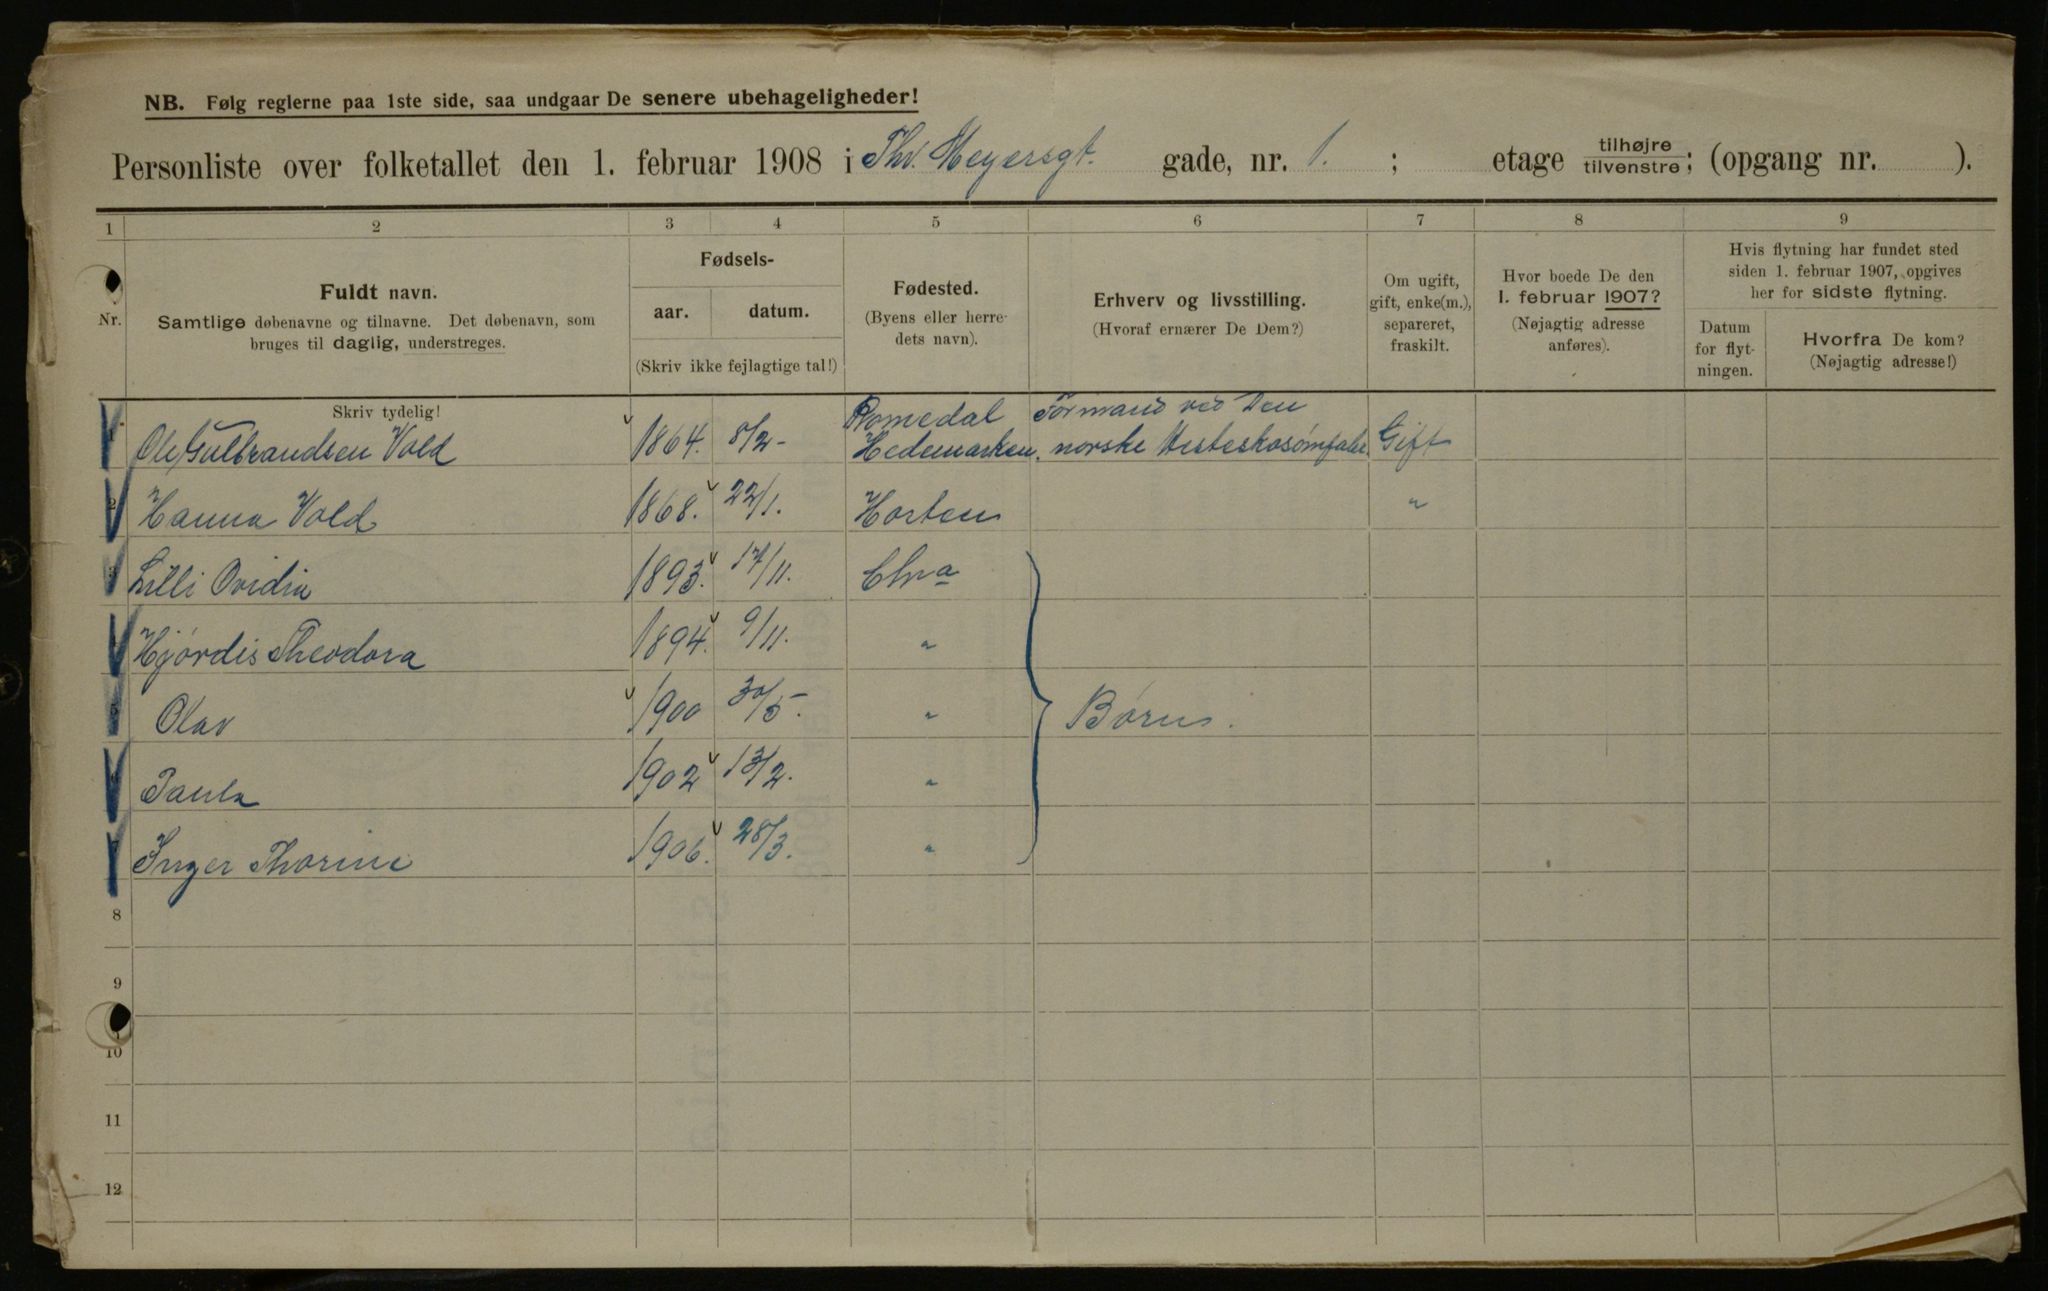 NB. Følg reglerne paa 1ste side, saa undgaar De senere ubehageligheder!
Personliste over folketallet den 1. februar 1908 i Thv. Meyersgt. gade, nr. 1. ; etage tilhøjre tilvenstre; (opgang nr. ).
1 2 3 4 5 6 7 8 9
Nr.
Fuldt navn.
Samtlige døbenavne og tilnavne. Det døbenavn, som
bruges til daglig, understreges.
Fødsels-
aar. datum.
(Skriv ikke fejlagtige tal!)
Fødested.
(Byens eller herre-
dets navn).
Erhverv og livsstilling.
(Hvoraf ernærer De Dem?)
Om ugift,
gift, enke(m.),
separeret,
fraskilt.
Hvor boede De den
1. februar 1907?
(Nøjagtig adresse
anføres).
Hvis flytning har fundet sted
siden 1. februar 1907, opgives
her for sidste flytning.
Datum
for flyt-
ningen.
Hvorfra De kom?
(Nøjagtig adresse!)
Skriv tydelig!
Romedal Formand ved Den
1 Ole Gulbrandsen Vold 1864. 8/2- Hedemarken. norske Hesteskosømfabr. Gift
2 Hanna Vold 1868. 22/1. Horten "
3 Lilli Ovidia 1893. 17/11. Chra
4 Hjördis Theodora 1894. 9/11. "
5 Olav 1900 30/5-. " Børn.
6 Paula 1902 13/2. "
7 Inger Thorine 1906. 28/3. "
8
9
10
11
12